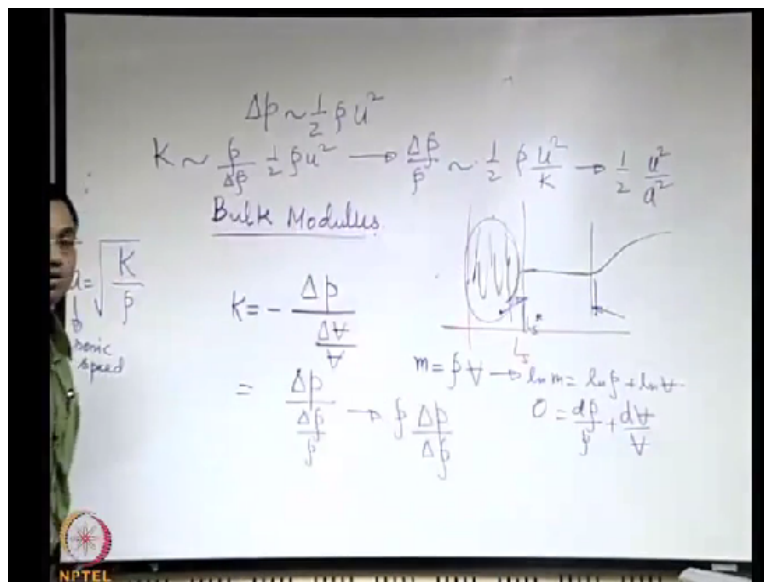 Δp ~ 1/2 ρ u²
K ~ ρ/Δρ 1/2 ρu² → Δρ/ρ ~ 1/2 ρ u²/K → 1/2 u²/a²
Bulk Modulus
a = √(K/ρ)
sonic
speed
K = - Δp/(ΔV/V)
= Δp/(Δρ/ρ) → ρ Δp/Δρ
m = ρV → ln m = ln ρ + ln V
0 = dρ/ρ + dV/V
NPTEL